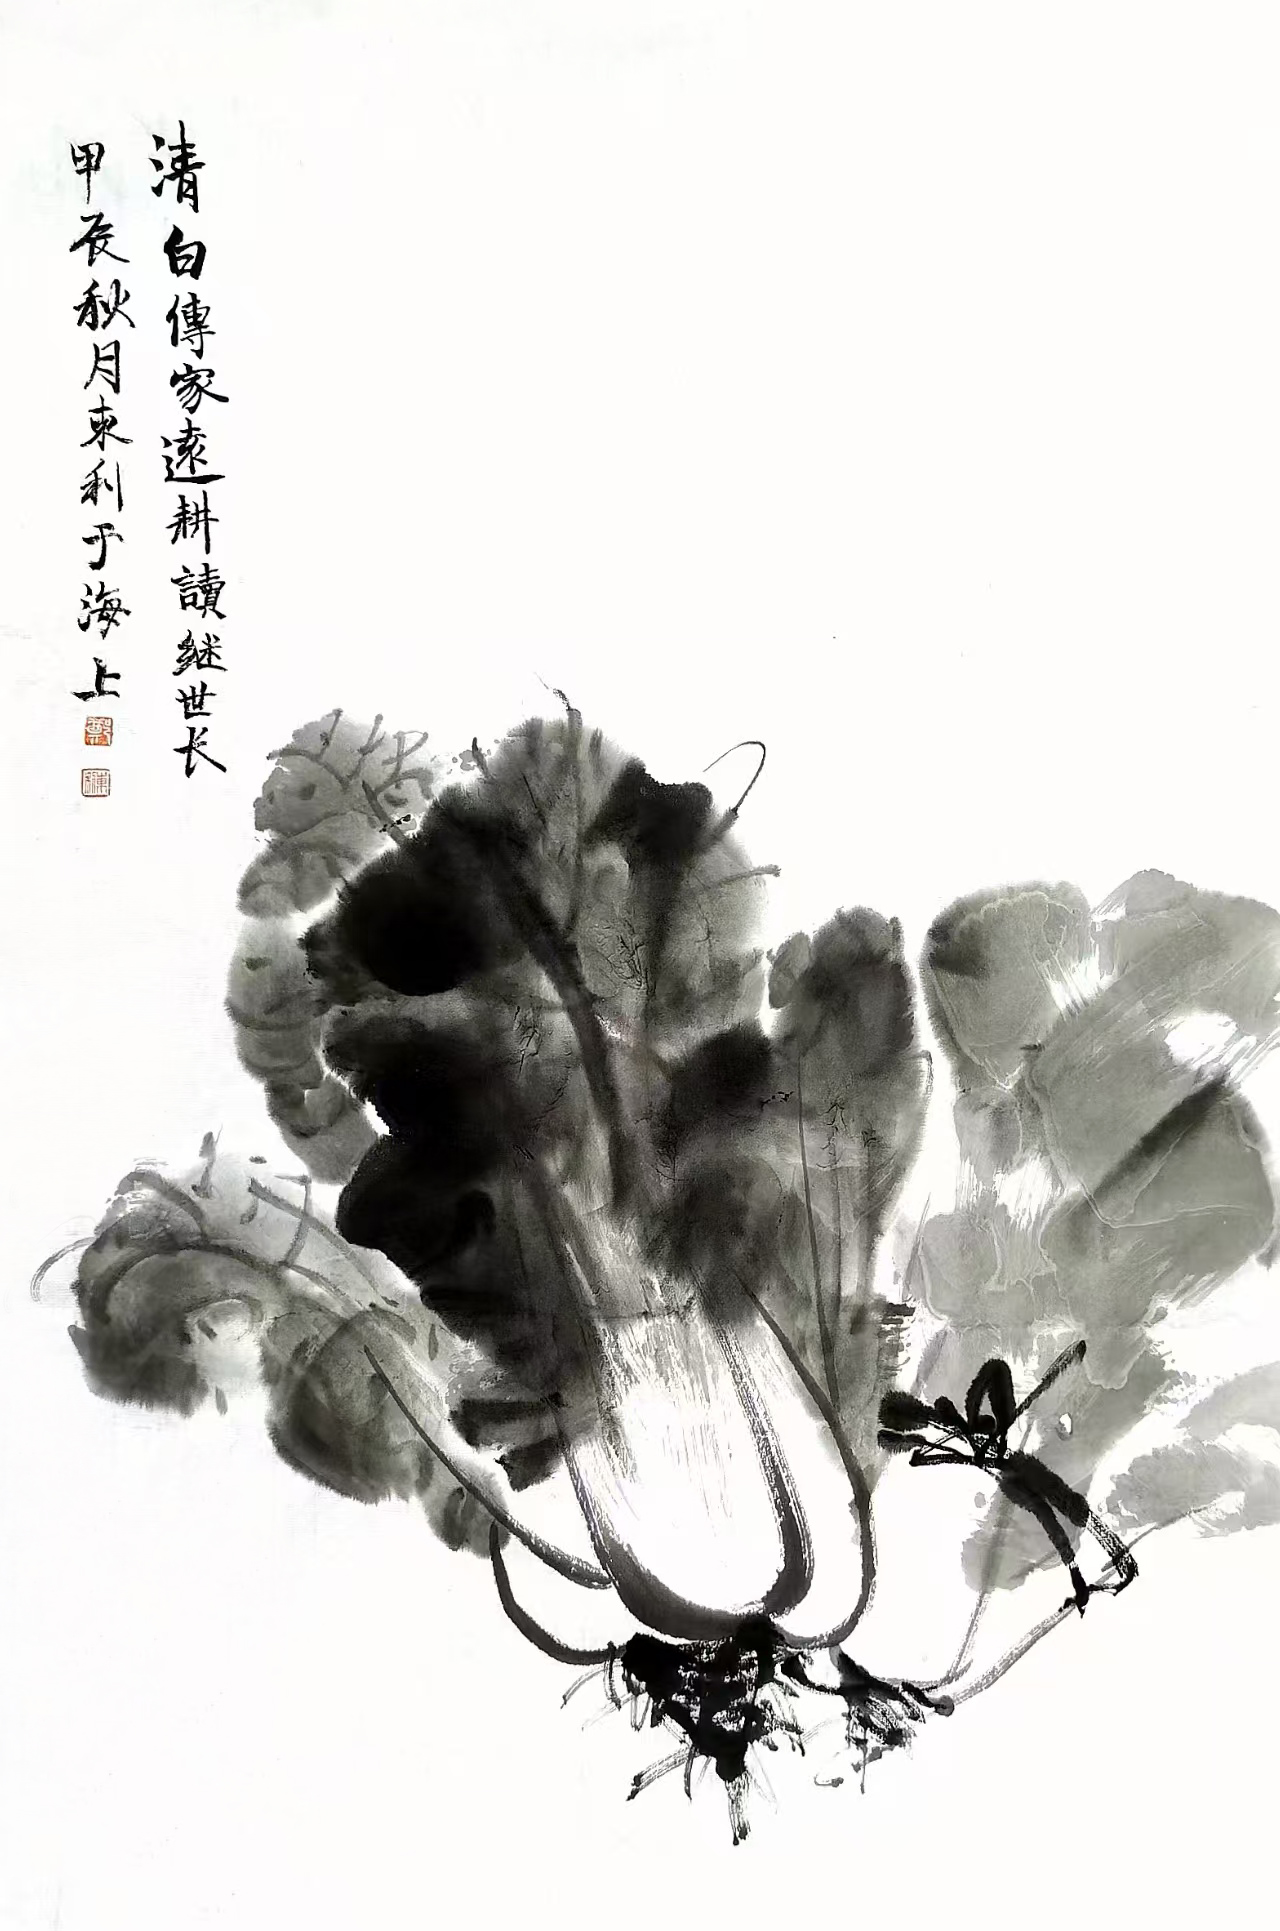 清白傳家遠耕讀继世长
甲辰秋月東利于海上
鄭